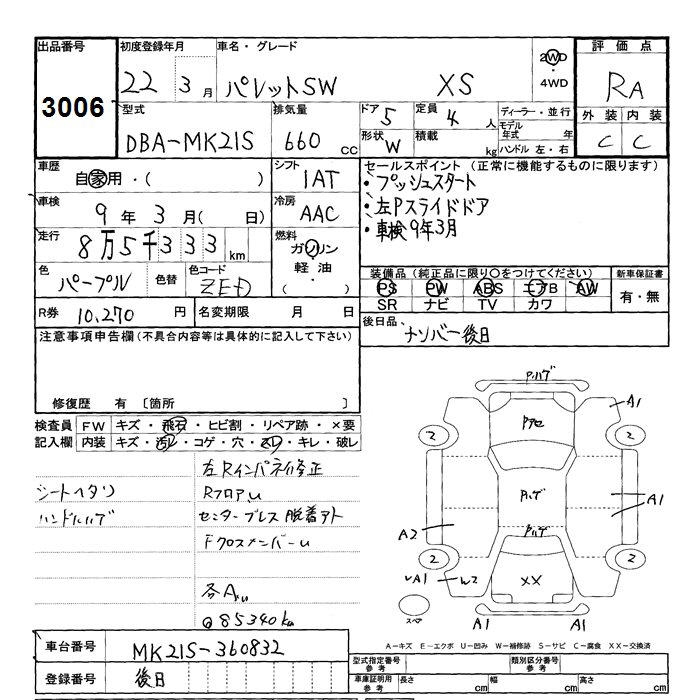 出品番号 初度登録年月 車名・グレード 2WD ・ 4WD 評価点
3006 22 3月 パレットSW XS RA
型式 排気量 ドア 5 定員 4人 ディーラー・並行 外装 内装
DBA-MK21S 660cc 形状 W 積載 kg モデル年式 年 ハンドル 左・右 C C
車歴 自家用・( ) シフト 1AT セールスポイント(正常に機能するものに限ります)
・プッシュスタート
車検 9年3月( 日) 冷房 AAC ・左Pスライドドア
走行 8万5千333km 燃料 ガソリン 軽油・( ) ・車検9年3月
色 パープル 色替 色コード ZED 装備品(純正品に限り○をつけてください) 新車保証書
PS PW ABS エアB AW 有・無
SR ナビ TV カワ
R券 10,270円 名変期限 月 日 後日品 ナンバー後日
注意事項申告欄(不具合内容等は具体的に記入して下さい)
修復歴 有 〔箇所 〕
検査員記入欄 FW キズ・飛石・ヒビ割・リペア跡・×要
内装 キズ・汚レ・コゲ・穴・スレ・キレ・破レ
左Rインパネ修正
シートヘタリ RフロアU
ハンドルハゲ センターブレス脱着アト
FクロスメンバーU
各AU
@85340km
PハゲA1
2 Pアセ 2
Pハゲ A1
A2 Pハゲ
2 2
A1 W2 XX
スペア A1 A1
A-キズ E-エクボ U-凹み W-補修跡 S-サビ C-腐食 XX-交換済
車台番号 MK21S-360832 型式指定番号 参考 類別区分番号 参考
登録番号 後日 車庫証明用 参考 長さ cm 幅 cm 高さ cm